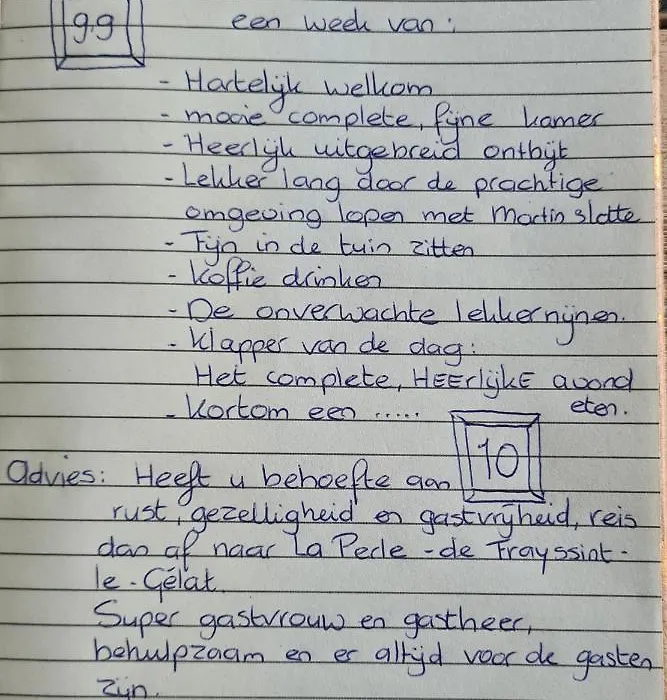 99 een week van:
- Hartelijk welkom
- mooie complete, fijne kamer
- Heerlijk uitgebreid ontbijt
- Lekker lang door de prachtige
omgeving lopen met Martin slotte
- Fijn in de tuin zitten
- Koffie drinken
- De onverwachte lekkernijnen.
- Klapper van de dag:
Het complete, HEErlijkE avond
eten.
- Kortom een ..... 10
Advies: Heeft u behoefte aan
rust, gezelligheid en gastvrijheid, reis
dan af naar La Perle - de Frayssint -
le - Gélat.
Super gastvrouw en gastheer,
behulpzaam en er altijd voor de gasten
zijn.